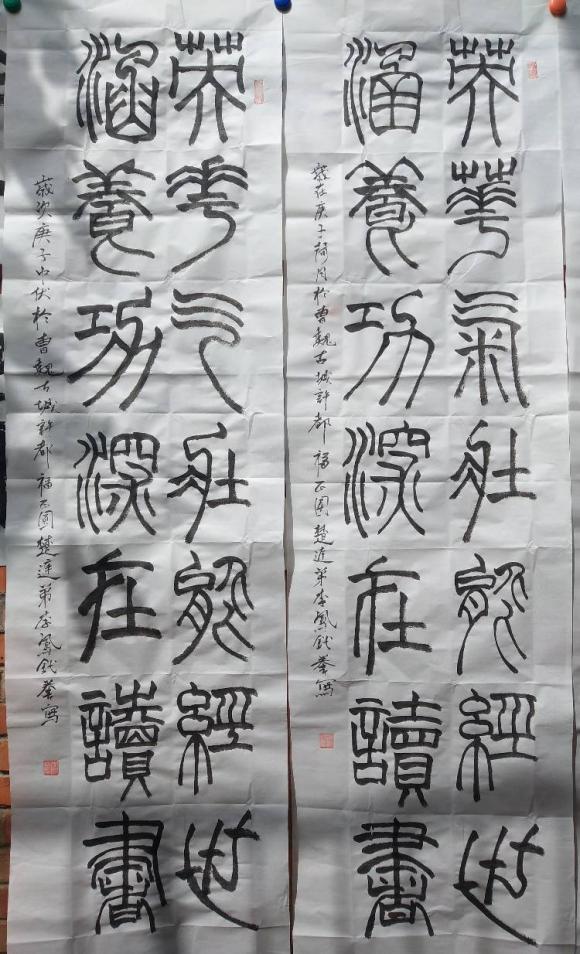 英華氣壯能經世
涵養功深在讀書
歲在庚子荷月於曹魏古城許都 福 園 李鳳 寫
英華气壯能經世
涵養功深在讀書
歲次庚子中伏於曹魏古城許都 福 園 李鳳 寫